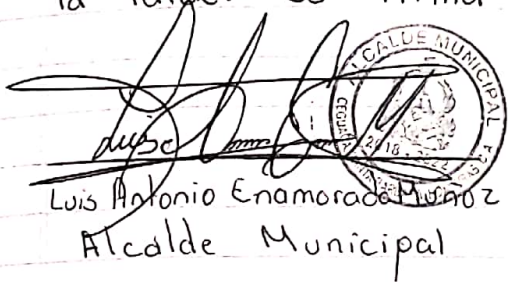 la tarde. Se firma
ALCALDE MUNICIPAL
2018 - 2022
Luis Antonio Enamorado Muñoz
Alcalde Municipal